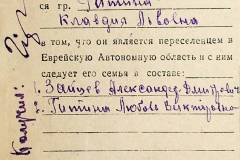 ся гр. Титина
Клавдия Львовна
в том, что он является переселенцем в
Еврейскую Автономную область и с ним
следует его семья в составе:
1. Зайцев Александр Дмитрович
2. Титина Любовь Викторовна